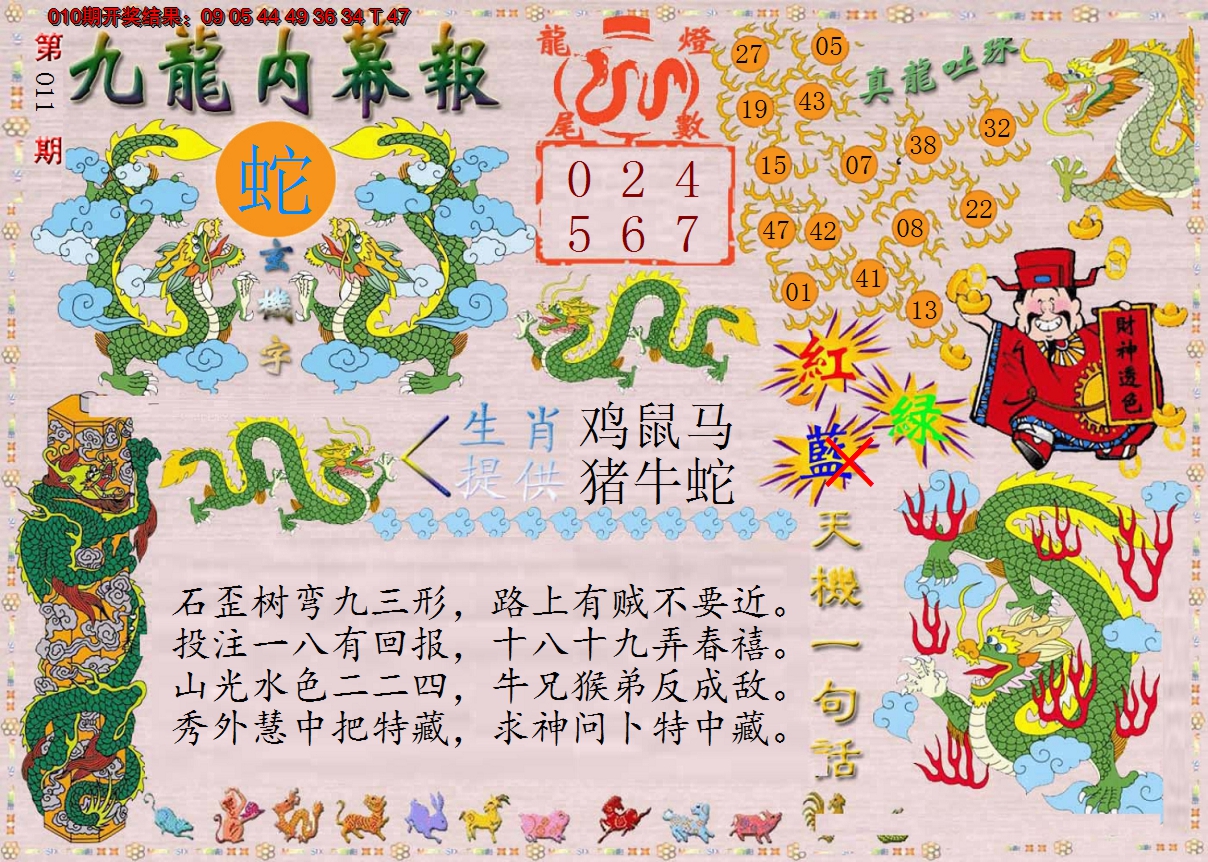 010期开奖结果：09 05 44 49 36 34 T 47
第011期
九龍内幕報
蛇
玄機字
龍燈
尾數
0 2 4
5 6 7
真龍吐珠
27
05
19
43
38
32
15
07
22
47
42
08
41
01
13
財神透色
紅
綠
藍
生肖
提供
鸡鼠马
猪牛蛇
石歪树弯九三形，路上有贼不要近。
投注一八有回报，十八十九弄春禧。
山光水色二二四，牛兄猴弟反成敌。
秀外慧中把特藏，求神问卜特中藏。
天機一句話